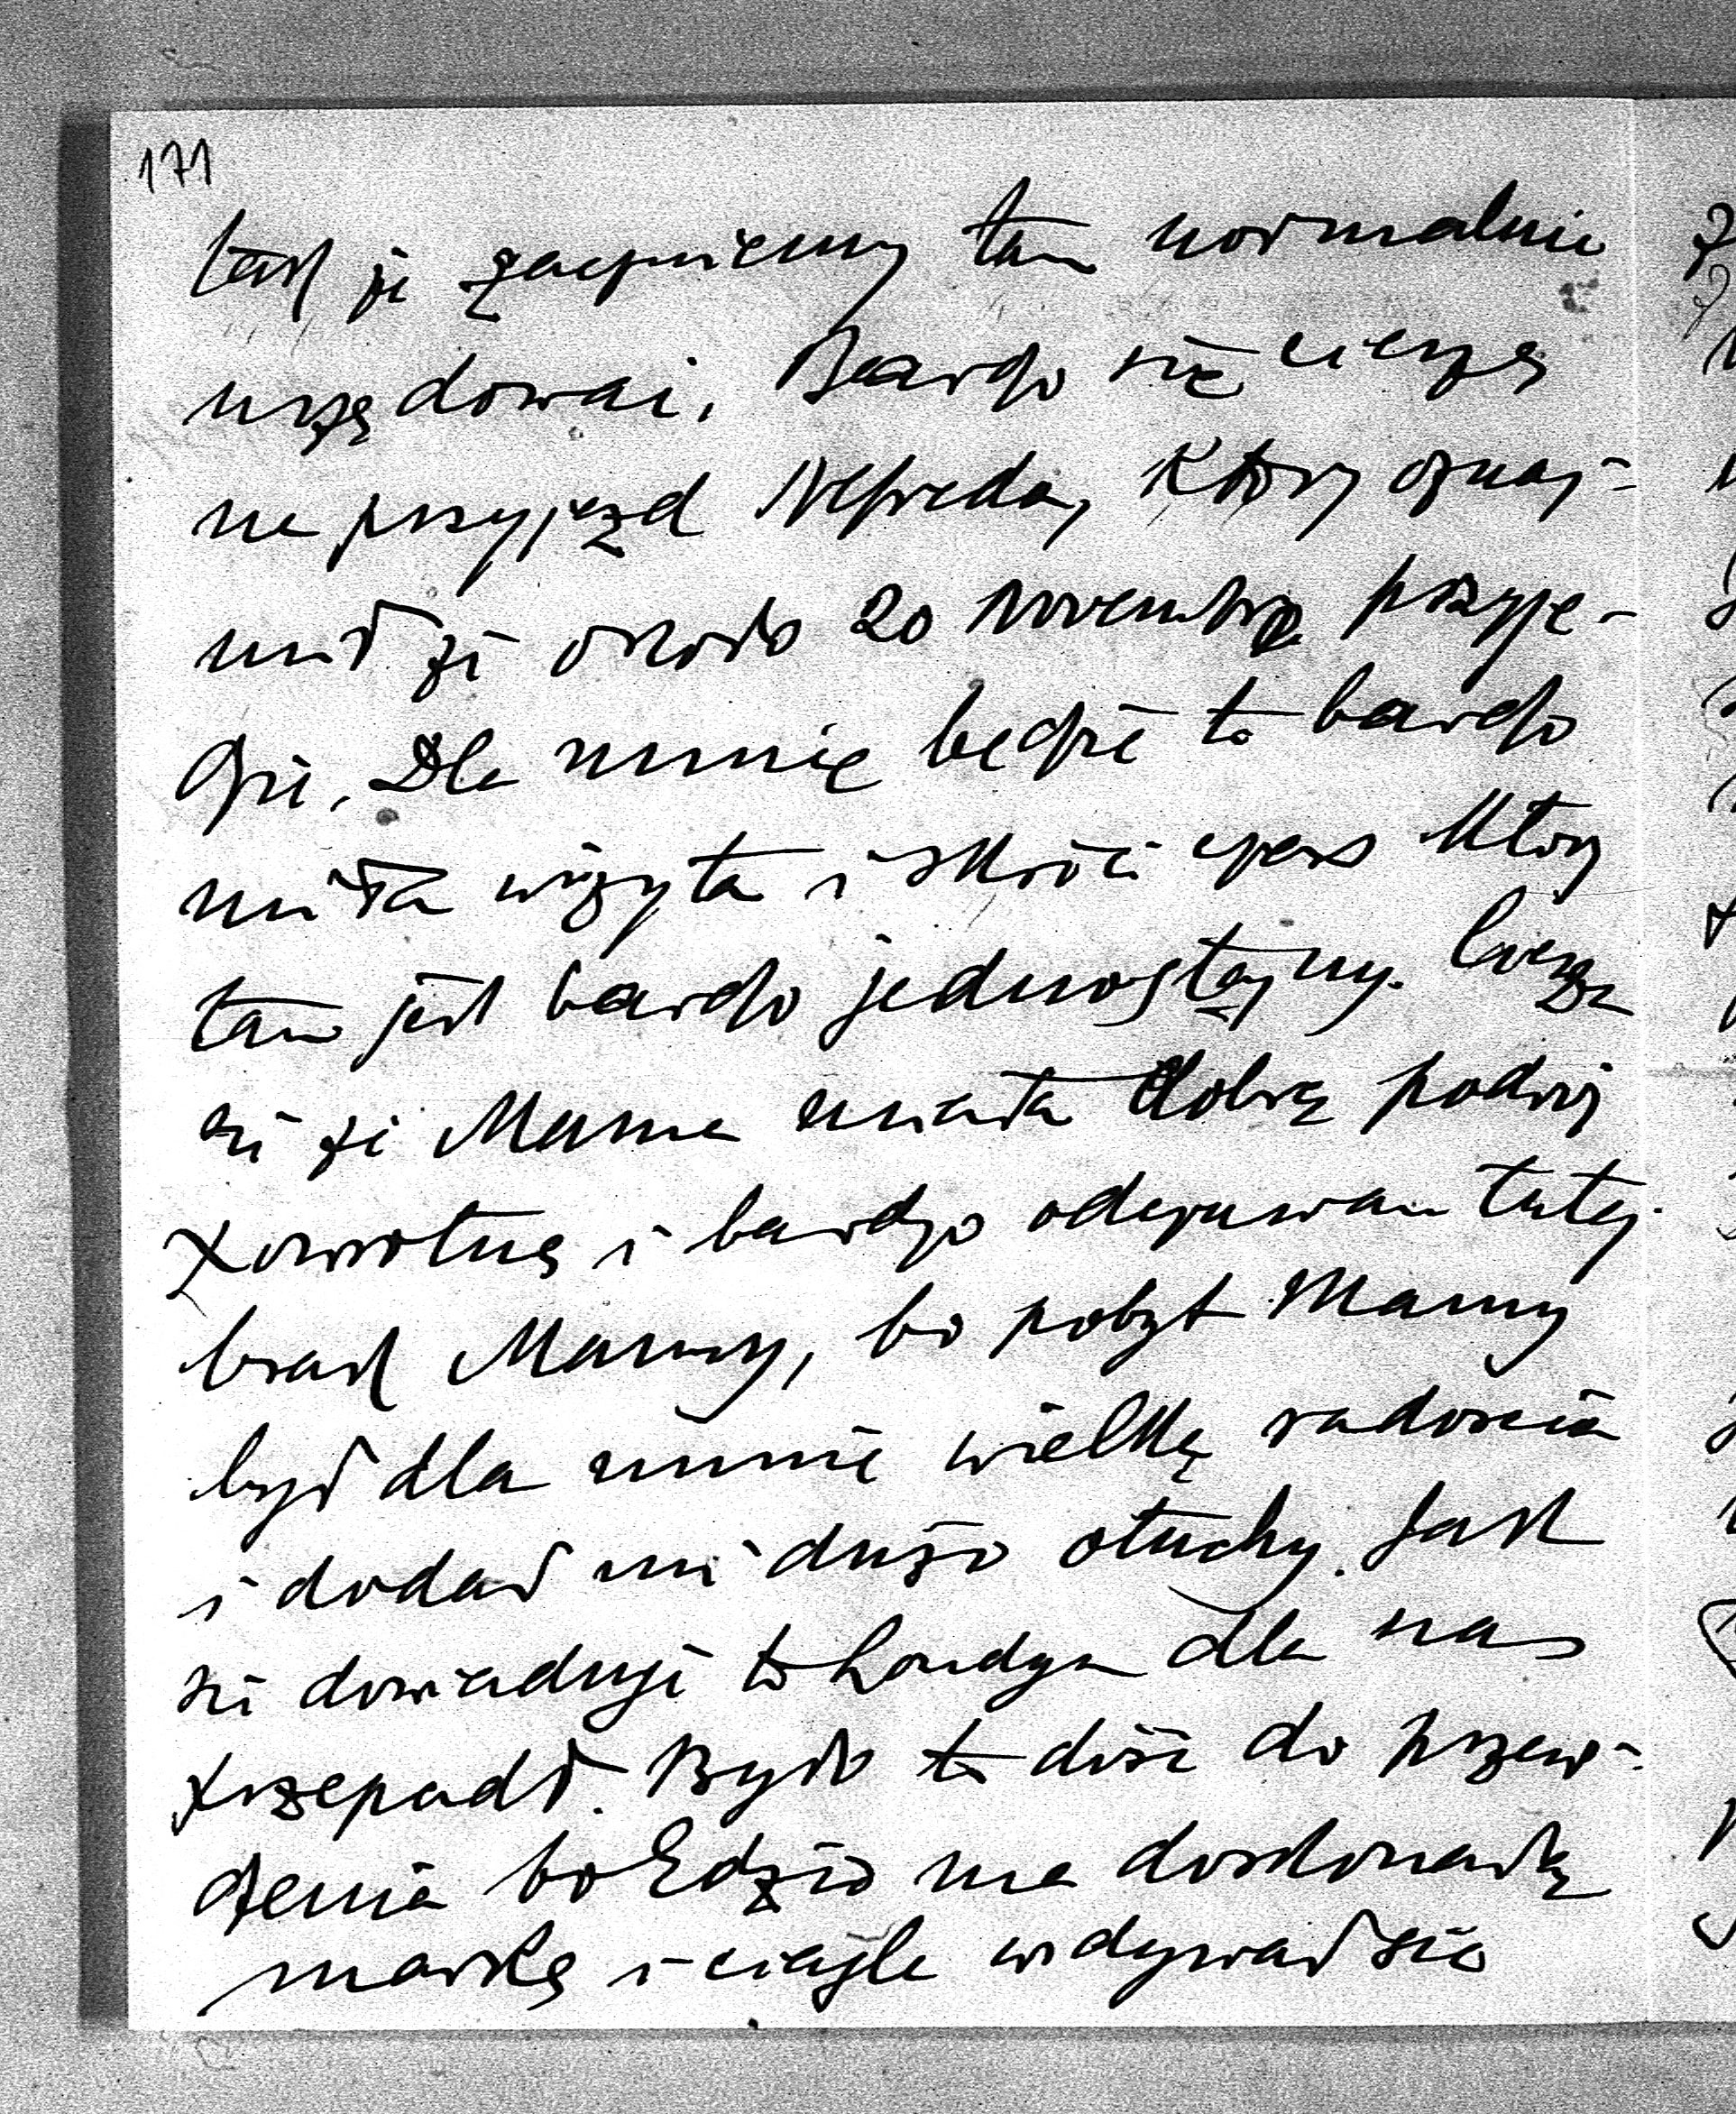 171
tak że zaczniemy tam normalnie
urzędowai. Bardzo się cieszę
na przyjazd Alfreda, który oznaj-
mił że około 20 novembra przyje-
dzie. Dla mnie będzie to bardzo
miła wizyta i skróci czas który
tam jest bardzo jednostajny. Cieszę
się że Mama miała dobrą podróż
powrotną i bardzo odczuwam tutej
brak Mamy, bo pobyt Mamy
był dla mnie wielką radoscią
i dodał mi dużo otuchy. Jak
się dowiaduje to Londyn dla nas
przepadł. Było to dość do przewi-
dzenia bo Edzio ma doskonałą
markę i ciągle widywał się